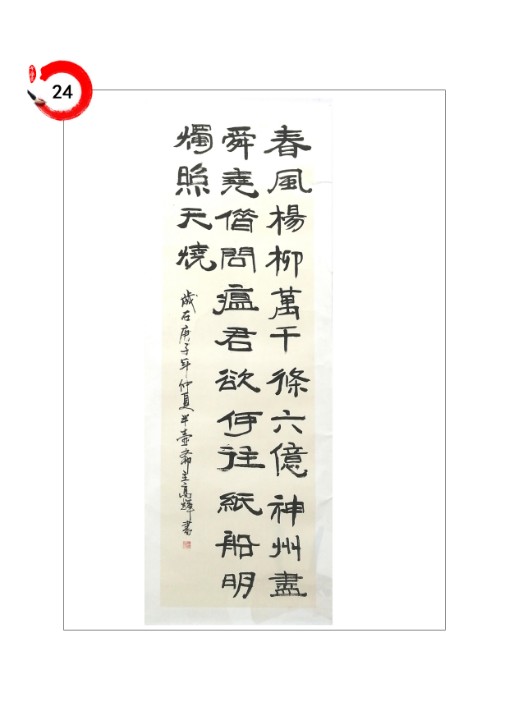 24
春風楊柳萬千條六億神州盡
舜堯借問瘟君欲何往紙船明
燭照天燒
歲在庚子年仲夏半壺齋主高輝書